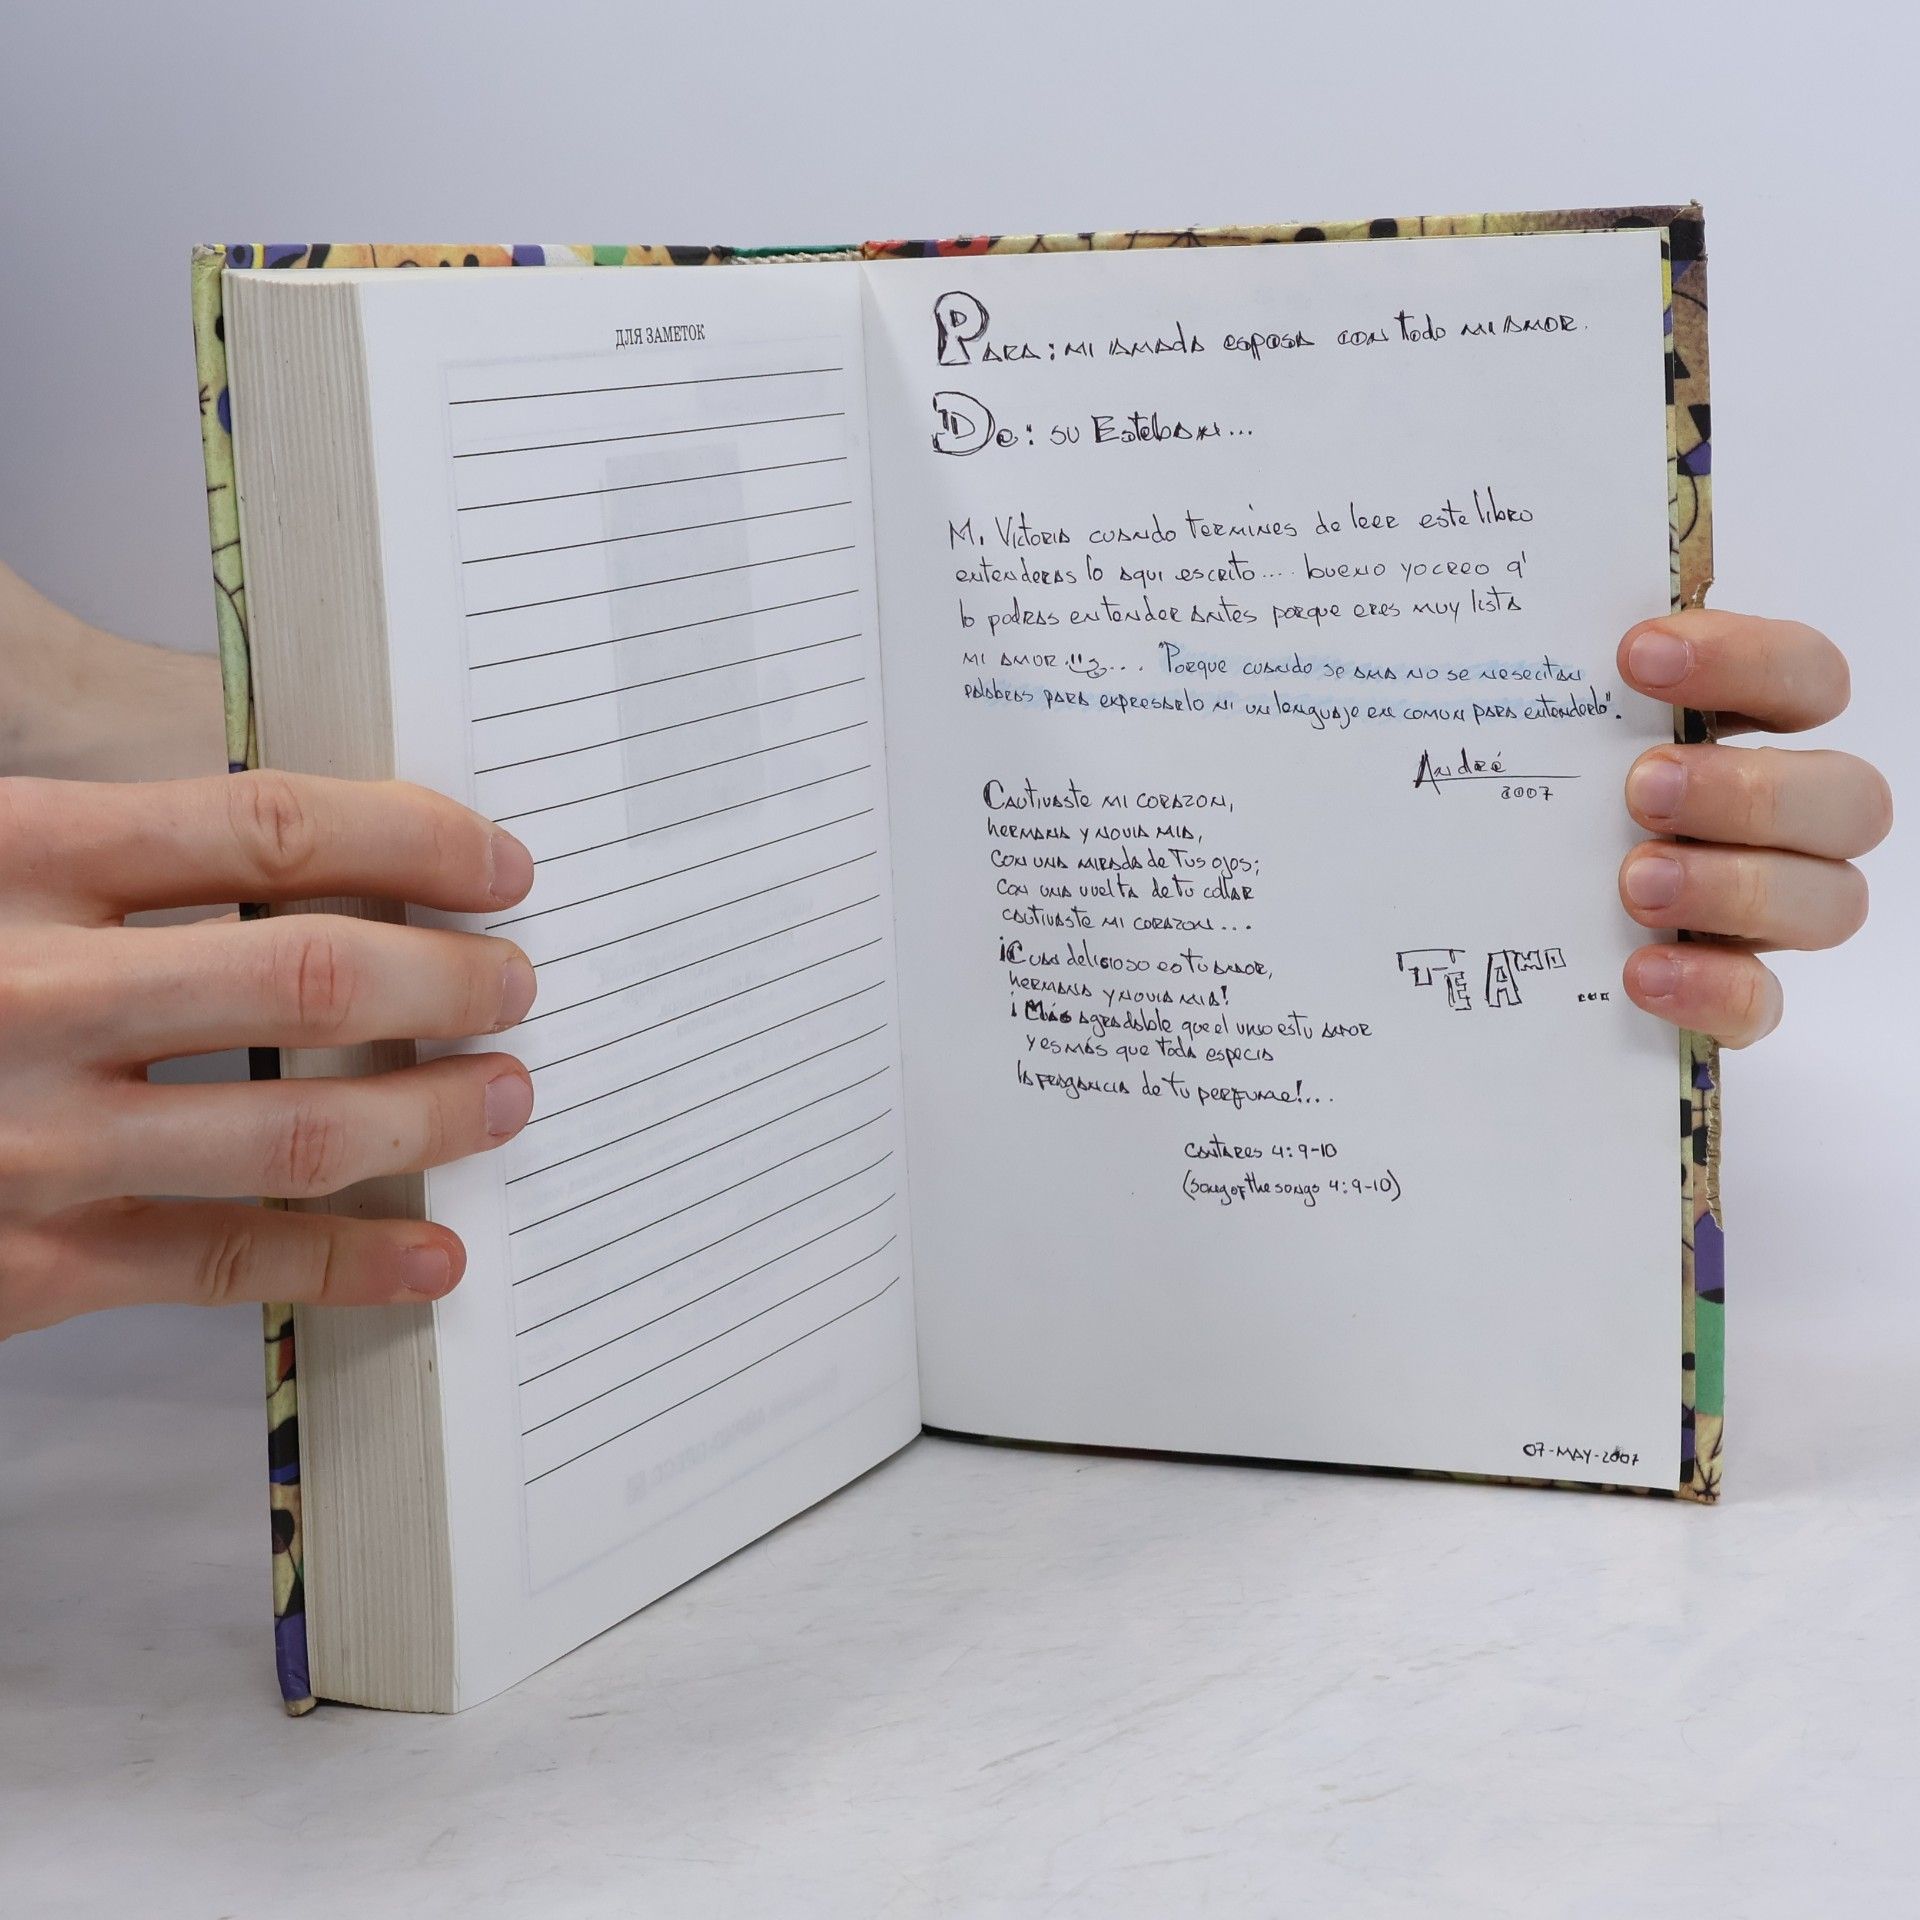 ДЛЯ ЗАМЕТОК
PARA: MI AMADA esposa con todo MI AMOR.
De: su Esteban...
M. Victoria cuando termines de leer este libro
entenderas lo aqui escrito.... bueno yo creo q'
lo podras entender antes porque eres muy lista
mi amor... "Porque cuando se ama no se nesecitan
palabras para expresarlo ni un lenguaje en comun para entenderlo".
André
2007
Cautivaste mi corazon,
hermana y novia mia,
con una mirada de tus ojos;
con una vuelta de tu collar
cautivaste mi corazon...
¡Cuan delicioso es tu amor,
hermana y novia mia!
¡Más agradable que el vino es tu amor
y es más que toda especia
la fragancia de tu perfume!...
TE AMO...
Cantares 4:9-10
(Song of the songs 4:9-10)
07-MAY-2007